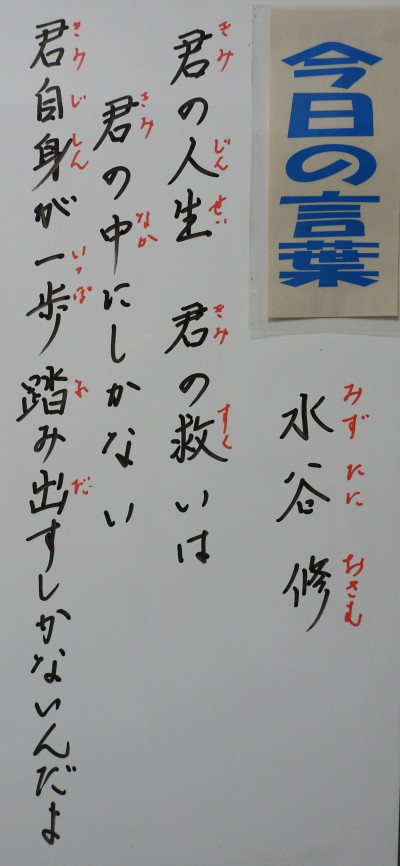 今日の言葉
水谷 修
みずたに おさむ
君の人生 君の救いは
きみ じんせい きみ すく
君の中にしかない
きみ なか
君自身が一歩踏み出すしかないんだよ
きみ じしん いっぽ ふ だ